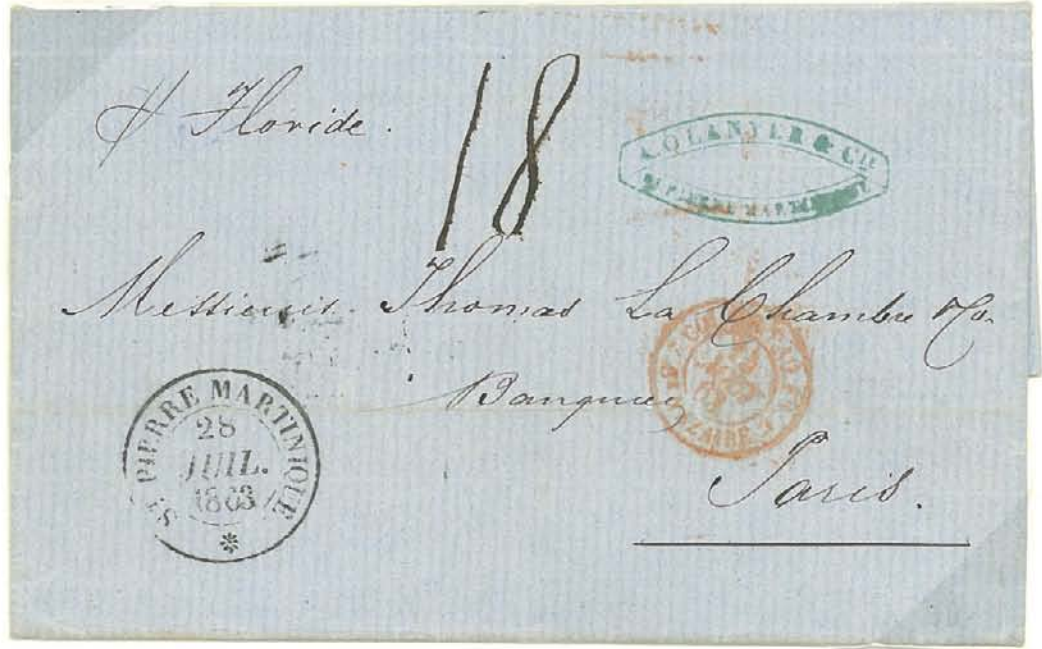 p Floride.
18
A. O'LANYER & Cie
St PIERRE MARTINIQUE
Messieurs Thomas La Chambre & Co.
Banquiers
Paris.
St PIERRE MARTINIQUE
28
JUIL.
1863